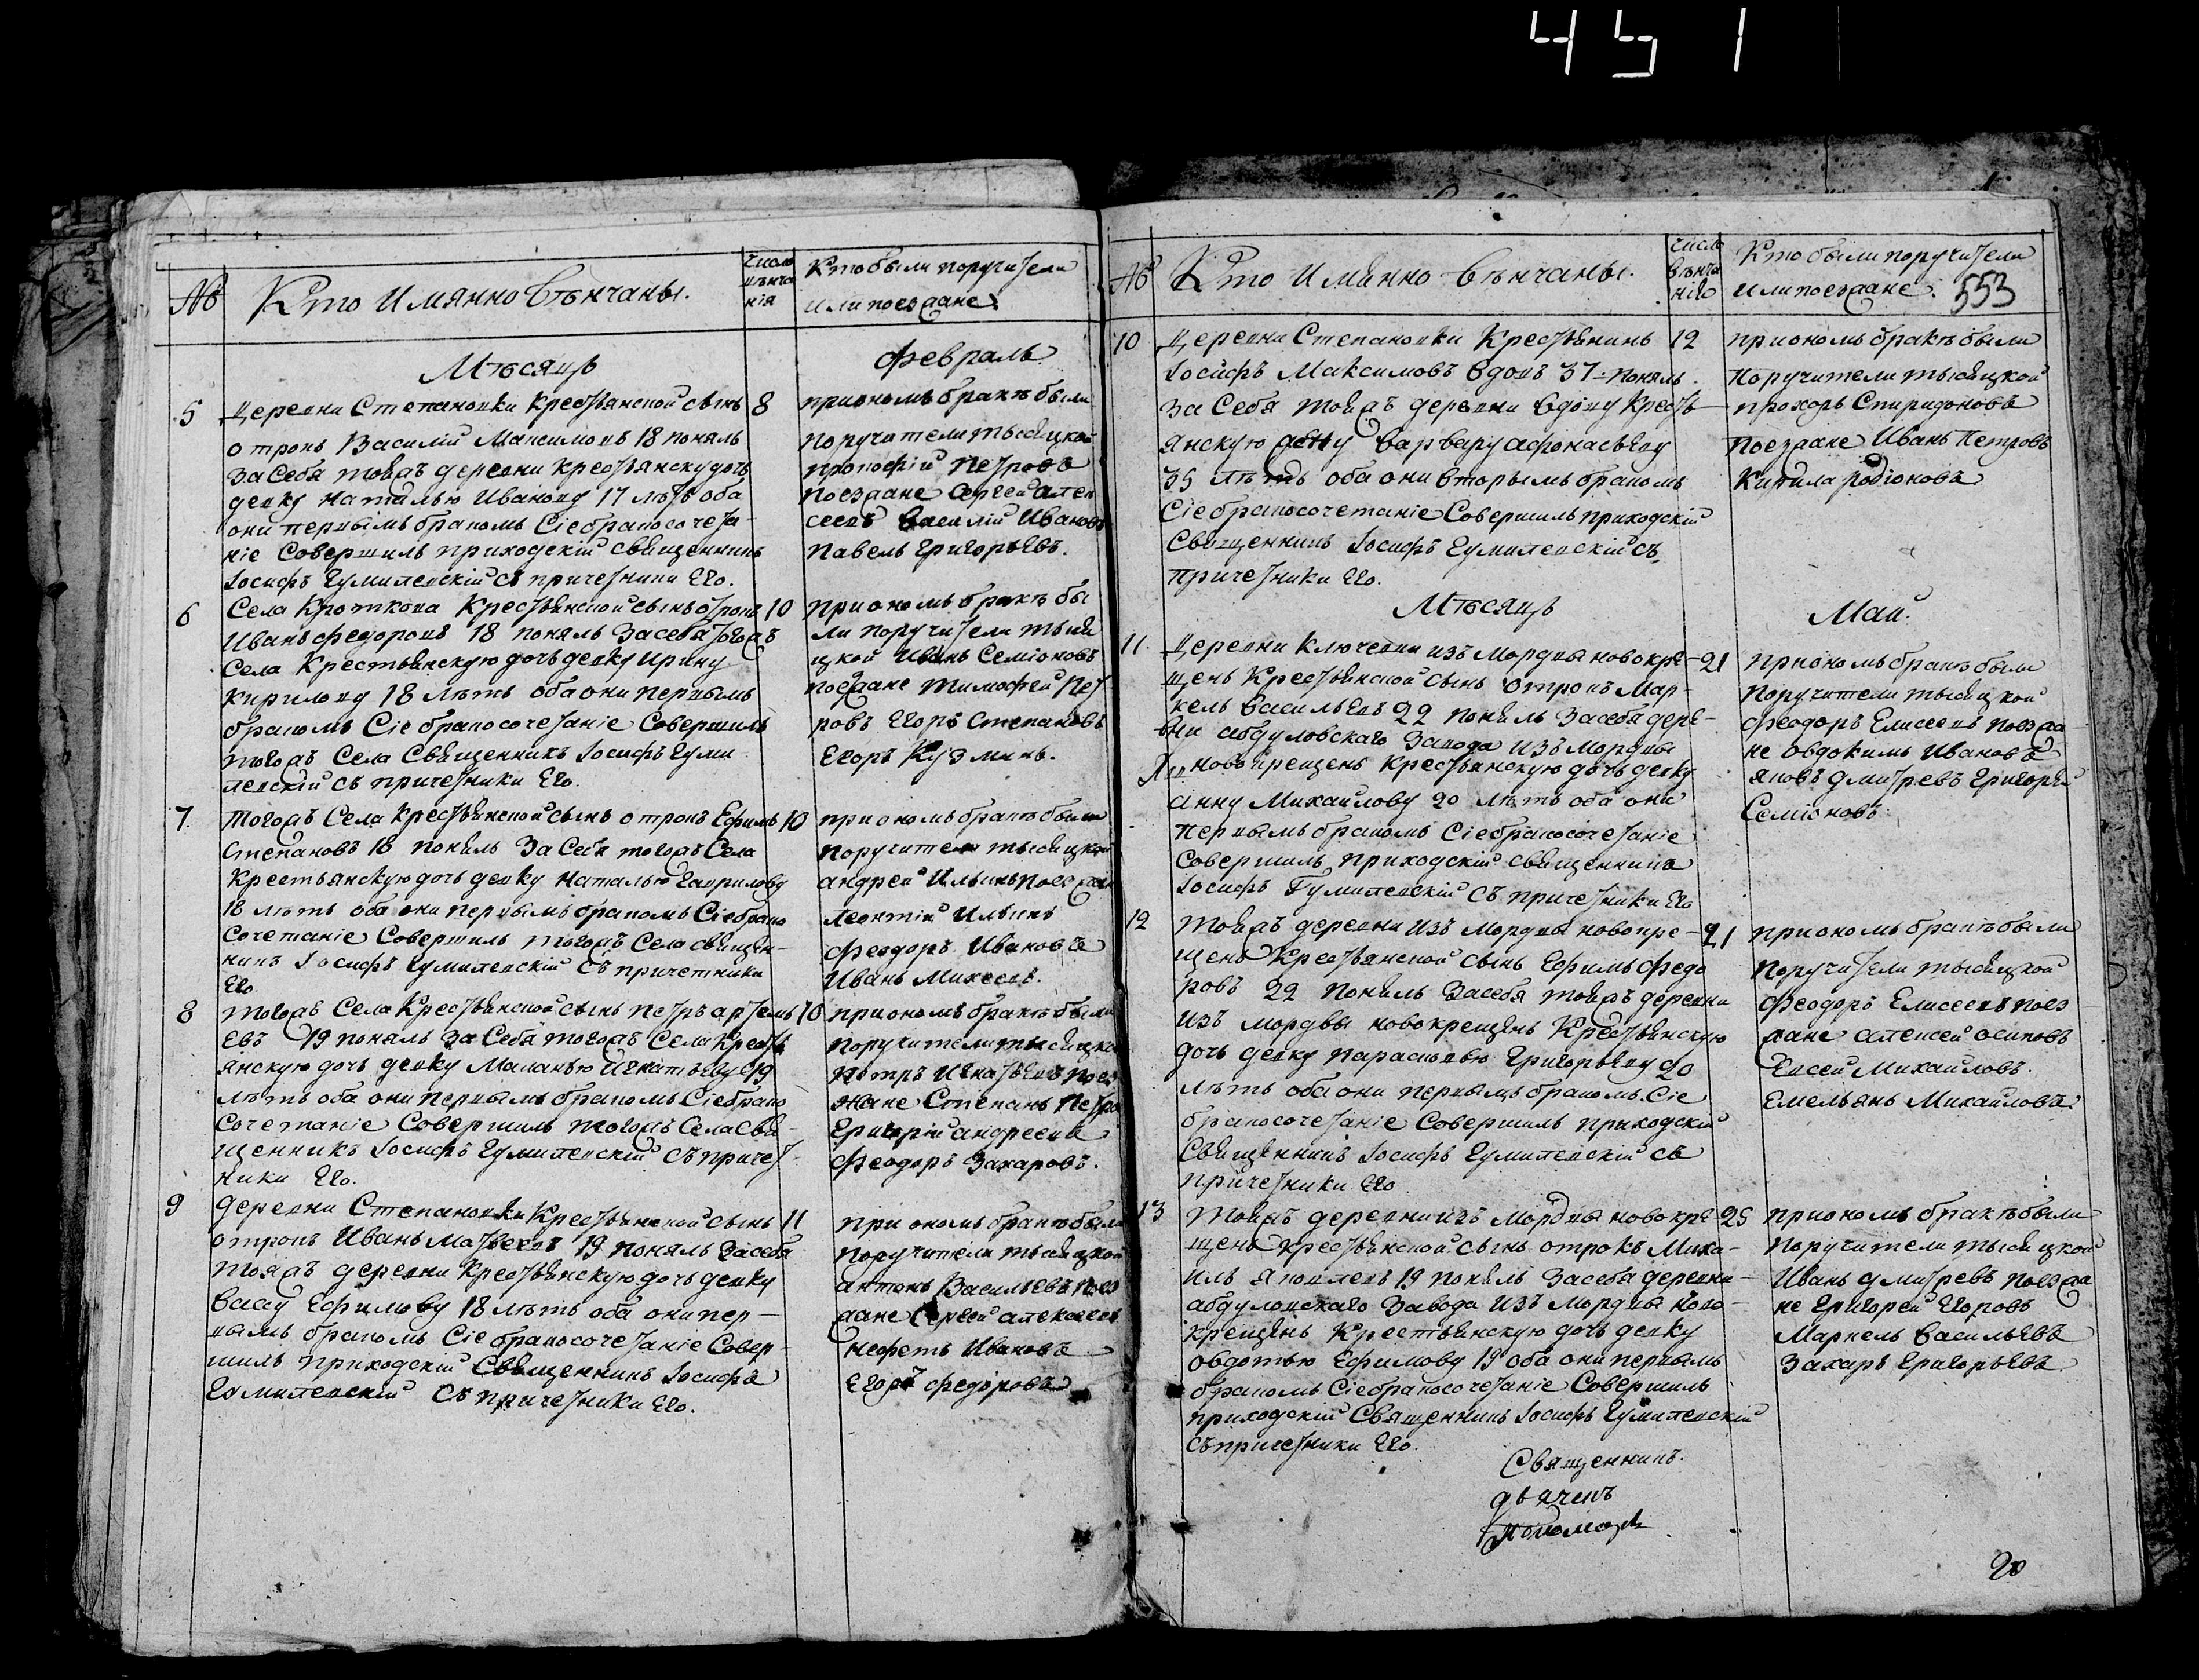 451
№
Кто Имянно Вѣнчаны.
число
вѣнча
нія
Кто были поручители
или поезжане.
Мѣсяцъ
Февраль
5
Деревни Степановки Крестьянской сынъ
отрокъ Василій Максимовъ 18 понялъ
за Себя тояжъ деревни крестьянску дочь
девку Наталью Иванову 17 летъ оба
они первымъ бракомъ Сіе бракосочета-
ніе Совершилъ приходскій священникъ
Іосифъ Гумилевскій съ причетники Его.
8
при ономъ бракѣ были
поручители тысяцкой
прокофій Петровъ
поезжане Сергей алек
сеевъ Василій Ивановъ
Павелъ Григорьевъ.
6
Села Кроткова Крестьянской сынъ отрокъ
Иванъ Федоровъ 18 понялъ за себя тогожъ
Села Крестьянскую дочь девку Ирину
Кирилову 18 лѣтъ оба они первымъ
бракомъ Сіе бракосочетаніе Совершилъ
тогожъ Села Священникъ Іосифъ Гуми
левскій съ причетники Его.
10
при ономъ бракѣ бы
ли поручители тыся
цкой Иванъ Семіоновъ
поезжане Тимофей Пет
ровъ Егоръ Степановъ
Егоръ Кузминъ.
7
Тогожъ Села Крестьянской сынъ отрокъ Ефимъ
Степановъ 18 понялъ За Себя тогожъ Села
Крестьянскую дочь девку Наталью Гаврилову
18 лѣтъ оба они первымъ бракомъ Сіе брако
Сочетаніе Совершилъ тогожъ Села священ-
никъ Іосифъ Гумилевскій Съ причетники
Его
10
при ономъ бракѣ были
поручители тысяцкой
андрей Ильинъ поезжан
Леонтій Ильинъ
Феодоръ Ивановъ
Иванъ Михеевъ.
8
Тогожъ Села Крестьянской сынъ Петръ артемь
евъ 19 понялъ за Себя тогожъ Села Кресть
янскую дочь девку Маланью Игнатьеву 19
лѣтъ оба они первымъ бракомъ Сіе брако
Сочетаніе Совершилъ тогожъ Села Свя-
щенникъ Іосифъ Гумилевскій Съ причет-
ники Его.
10
при ономъ бракѣ были
поручители тысяцкой
Петръ Игнатьевъ поез
жане Степанъ Петро
Григорій андреевъ
Феодоръ Захаровъ.
9
деревни Степановки Крестьянской сынъ
отрокъ Иванъ Матвеевъ 19 понялъ за себя
тояжъ деревни Крестьянскую дочь девку
Васу Ефимову 18 лѣтъ оба они пер-
вымъ бракомъ Сіе бракосочетаніе Совер-
шилъ приходскій Священникъ Іосифъ
Гумилевскій Съ причетники Его.
11
при ономъ бракѣ были
поручители тысяцкой
антонъ Васильевъ поез
жане Сергей алексеевъ
Нефетъ Ивановъ
Егоръ федоровъ
№
Кто Имянно Вѣнчаны.
число
вѣнча
нія
Кто были поручители
или поезжане.
553
10
Деревни Степановки Крестьянинъ
Іосифъ Максимовъ вдовъ 37 - понялъ
за Себя тояжъ деревни вдову Кресть-
янскую женку варвару афонасьеву
35 лѣтъ оба они вторымъ бракомъ
Сіе бракосочетаніе Совершилъ приходскій
Священникъ Іосифъ Гумилевскій съ
причетники Его.
12
при ономъ бракѣ были
поручители тысяцкой
прохоръ Спиридоновъ
поезжане Иванъ Петровъ
Кирила родіоновъ
Мѣсяцъ
Май.
11
Деревни Ключевки изъ Мордвы новокре-
щенъ Крестьянской сынъ отрокъ Мар-
келъ Васильевъ 22 понялъ За себя дере-
вни абдуловскаго Завода Изъ Мордвы
новокрещенъ Крестьянскую дочь девку
анну Михайлову 20 лѣтъ оба они
первымъ бракомъ Сіе бракосочетаніе
Совершилъ приходскій священникъ
Іосифъ Гумилевскій Съ причетники Его
21
при ономъ бракѣ были
поручители тысяцкой
Феодоръ Елисеевъ поезжа
не Овдокимъ Ивановъ
Яковъ Дмитревъ Григорей
Семіоновъ.
12
Тояжъ деревни Изъ Мордвы новокре-
щенъ Крестьянской сынъ Ефимъ Федо
ровъ 22 понялъ За себя тояжъ деревни
изъ мордвы новокрещенъ Крестьянскую
дочь девку парасковью Григорьеву 20
лѣтъ оба они первымъ бракомъ Сіе
бракосочетаніе Совершилъ приходскій
Священникъ Іосифъ Гумилевскій Съ
причетники Его
21
при ономъ бракѣ были
поручители тысяцкой
Феодоръ Елисеевъ поез
жане алексей осиповъ
Евсей Михайловъ.
Емельянъ Михайловъ
13
Тояжъ деревни изъ Мордвы новокре
щенъ крестьянской сынъ отрокъ Миха-
илъ Яковлевъ 19 понялъ За себя деревни
абдуловскаго Завода изъ Мордвы ново-
крещенъ Крестьянскую дочь девку
Овдотью Ефимову 19 оба они первымъ
бракомъ Сіе бракосочетаніе Совершилъ
приходскій Священникъ Іосифъ Гумилевскій
съ причетники Его.
25
при ономъ бракѣ были
поручители тысяцкой
Иванъ Дмитревъ поезжа
не Григорей Егоровъ
Маркелъ Васильевъ
Захаръ Григорьевъ
Священникъ.
дьячекъ
Пономарь
20